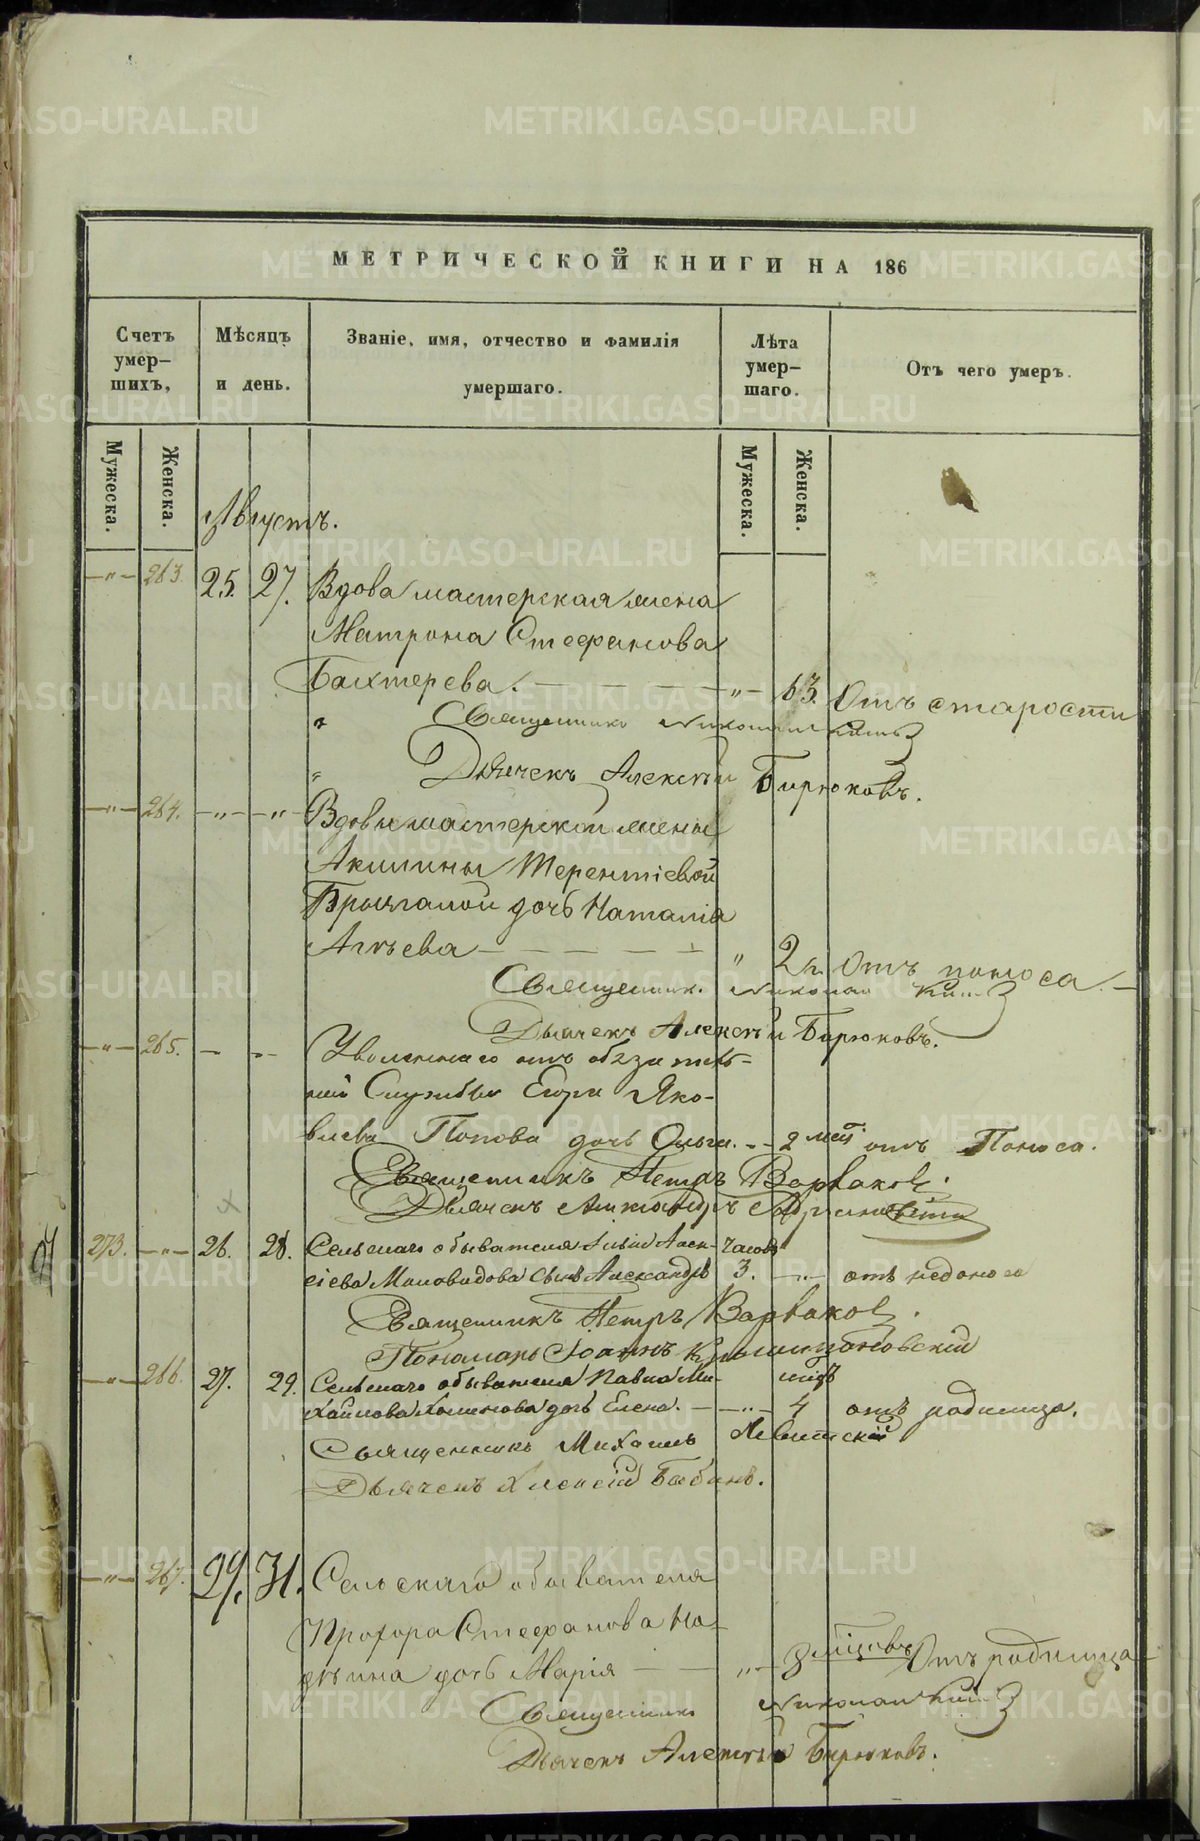 МЕТРИЧЕСКОЙ КНИГИ НА 186
Счетъ умер-шихъ,
Мѣсяцъ и день.
Званіе, имя, отчество и фамилія умершаго.
Лѣта умер-шаго.
Отъ чего умеръ.
Мужеска.
Женска.
Мужеска.
Женска.
Августъ.
—"— 263. 25. 27. Вдова мастерская жена
Матрона Стефанова
Бахтерева. — — — — "— 63. Отъ старости
Священникъ Николай
Дьячекъ Алексѣй Бирюковъ.
—"— 264. —"— —"— Вдовы мастерской жены
Акилины Терентіевой
дочь Наталія
— — — — " 2 Отъ поноса. —
Священник. Николай
Дьячекъ Алексѣй Бирюковъ.
—"— 265. — "— Уволеннаго отъ обязатель-
ной Службы Егора Яко-
влева Попова дочь Ольга. — 2 мес. отъ Поноса.
Священникъ Петръ Варваковъ.
Дьячекъ Александръ
273. —"— 26. 28. Сельскаго обывателя Алек- часовъ
сіева Миловидова Сынъ Александръ 3. —"— отъ недоноса
Священникъ Петръ Варваковъ.
Пономарь Іоаннъ
—"— 266. 27. 29. Сельскаго обывателя Павла Ми-
хайлова дочь Елена. — —"— 4 отъ родимца.
Священникъ Михаилъ Левитскій
Дьячекъ Алексій Бабинъ.
—"— 267. 29. 31. Сельскаго обывателя
Прохора Стефанова На-
дѣина дочь Марія — — "— 3 мѣсяцовъ Отъ родимца —
Священникъ Николай
Дьячекъ Алексѣй Бирюковъ.
METRIKI.GASO-URAL.RU